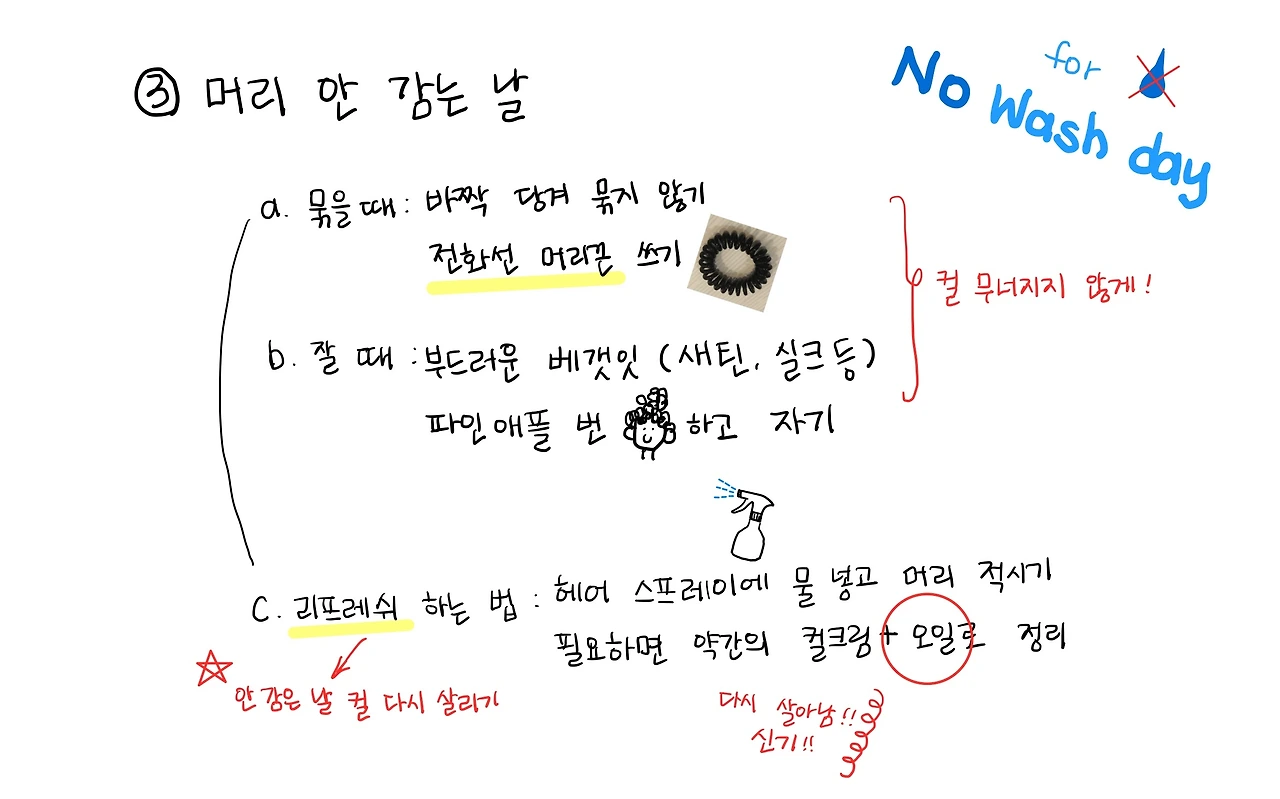 ③ 머리 안 감는 날
for
No Wash day
a. 묶을 때 : 바짝 당겨 묶지 않기
전화선 머리끈 쓰기
컬 무너지지 않게!
b. 잘 때 : 부드러운 베갯잇 (새틴, 실크 등)
파인애플 번 하고 자기
c. 리프레쉬 하는 법 : 헤어 스프레이에 물 넣고 머리 적시기
필요하면 약간의 컬크림 + 오일로 정리
안 감은 날 컬 다시 살리기
다시 살아남!!
신기!!